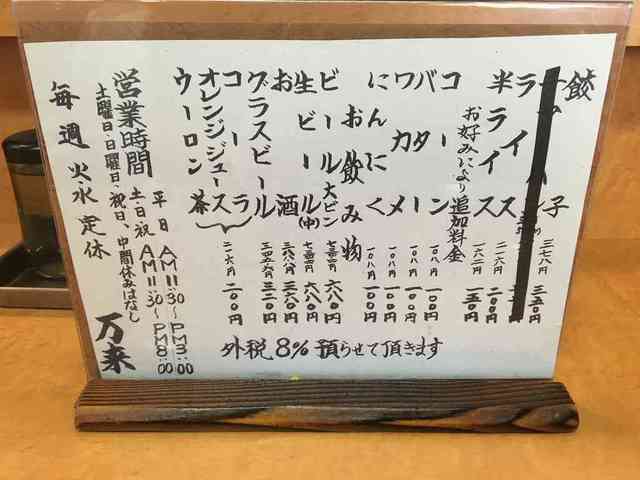 餃子 三七八円 三五〇円
ライス 二一六円 二〇〇円
半ライス 一六二円 一五〇円
お好みにより追加料金
コーン 一〇八円 一〇〇円
バター 一〇八円 一〇〇円
ワカメ 一〇八円 一〇〇円
にんにく 一〇八円 一〇〇円
お飲み物
ビール大ビン 七三四円 六八〇円
生ビール(中) 七三四円 六八〇円
お酒 三八八円 三六〇円
グラスビール 三四五円 三二〇円
コーラ
オレンジジュース
ウーロン茶
二一六円 二〇〇円
外税8%預らせて頂きます
営業時間
平日 AM11:30〜PM3:00
土日・祝 AM11:30〜PM8:00
土曜日、日曜日、祝日、中間休みはなし
毎週火水定休
万来